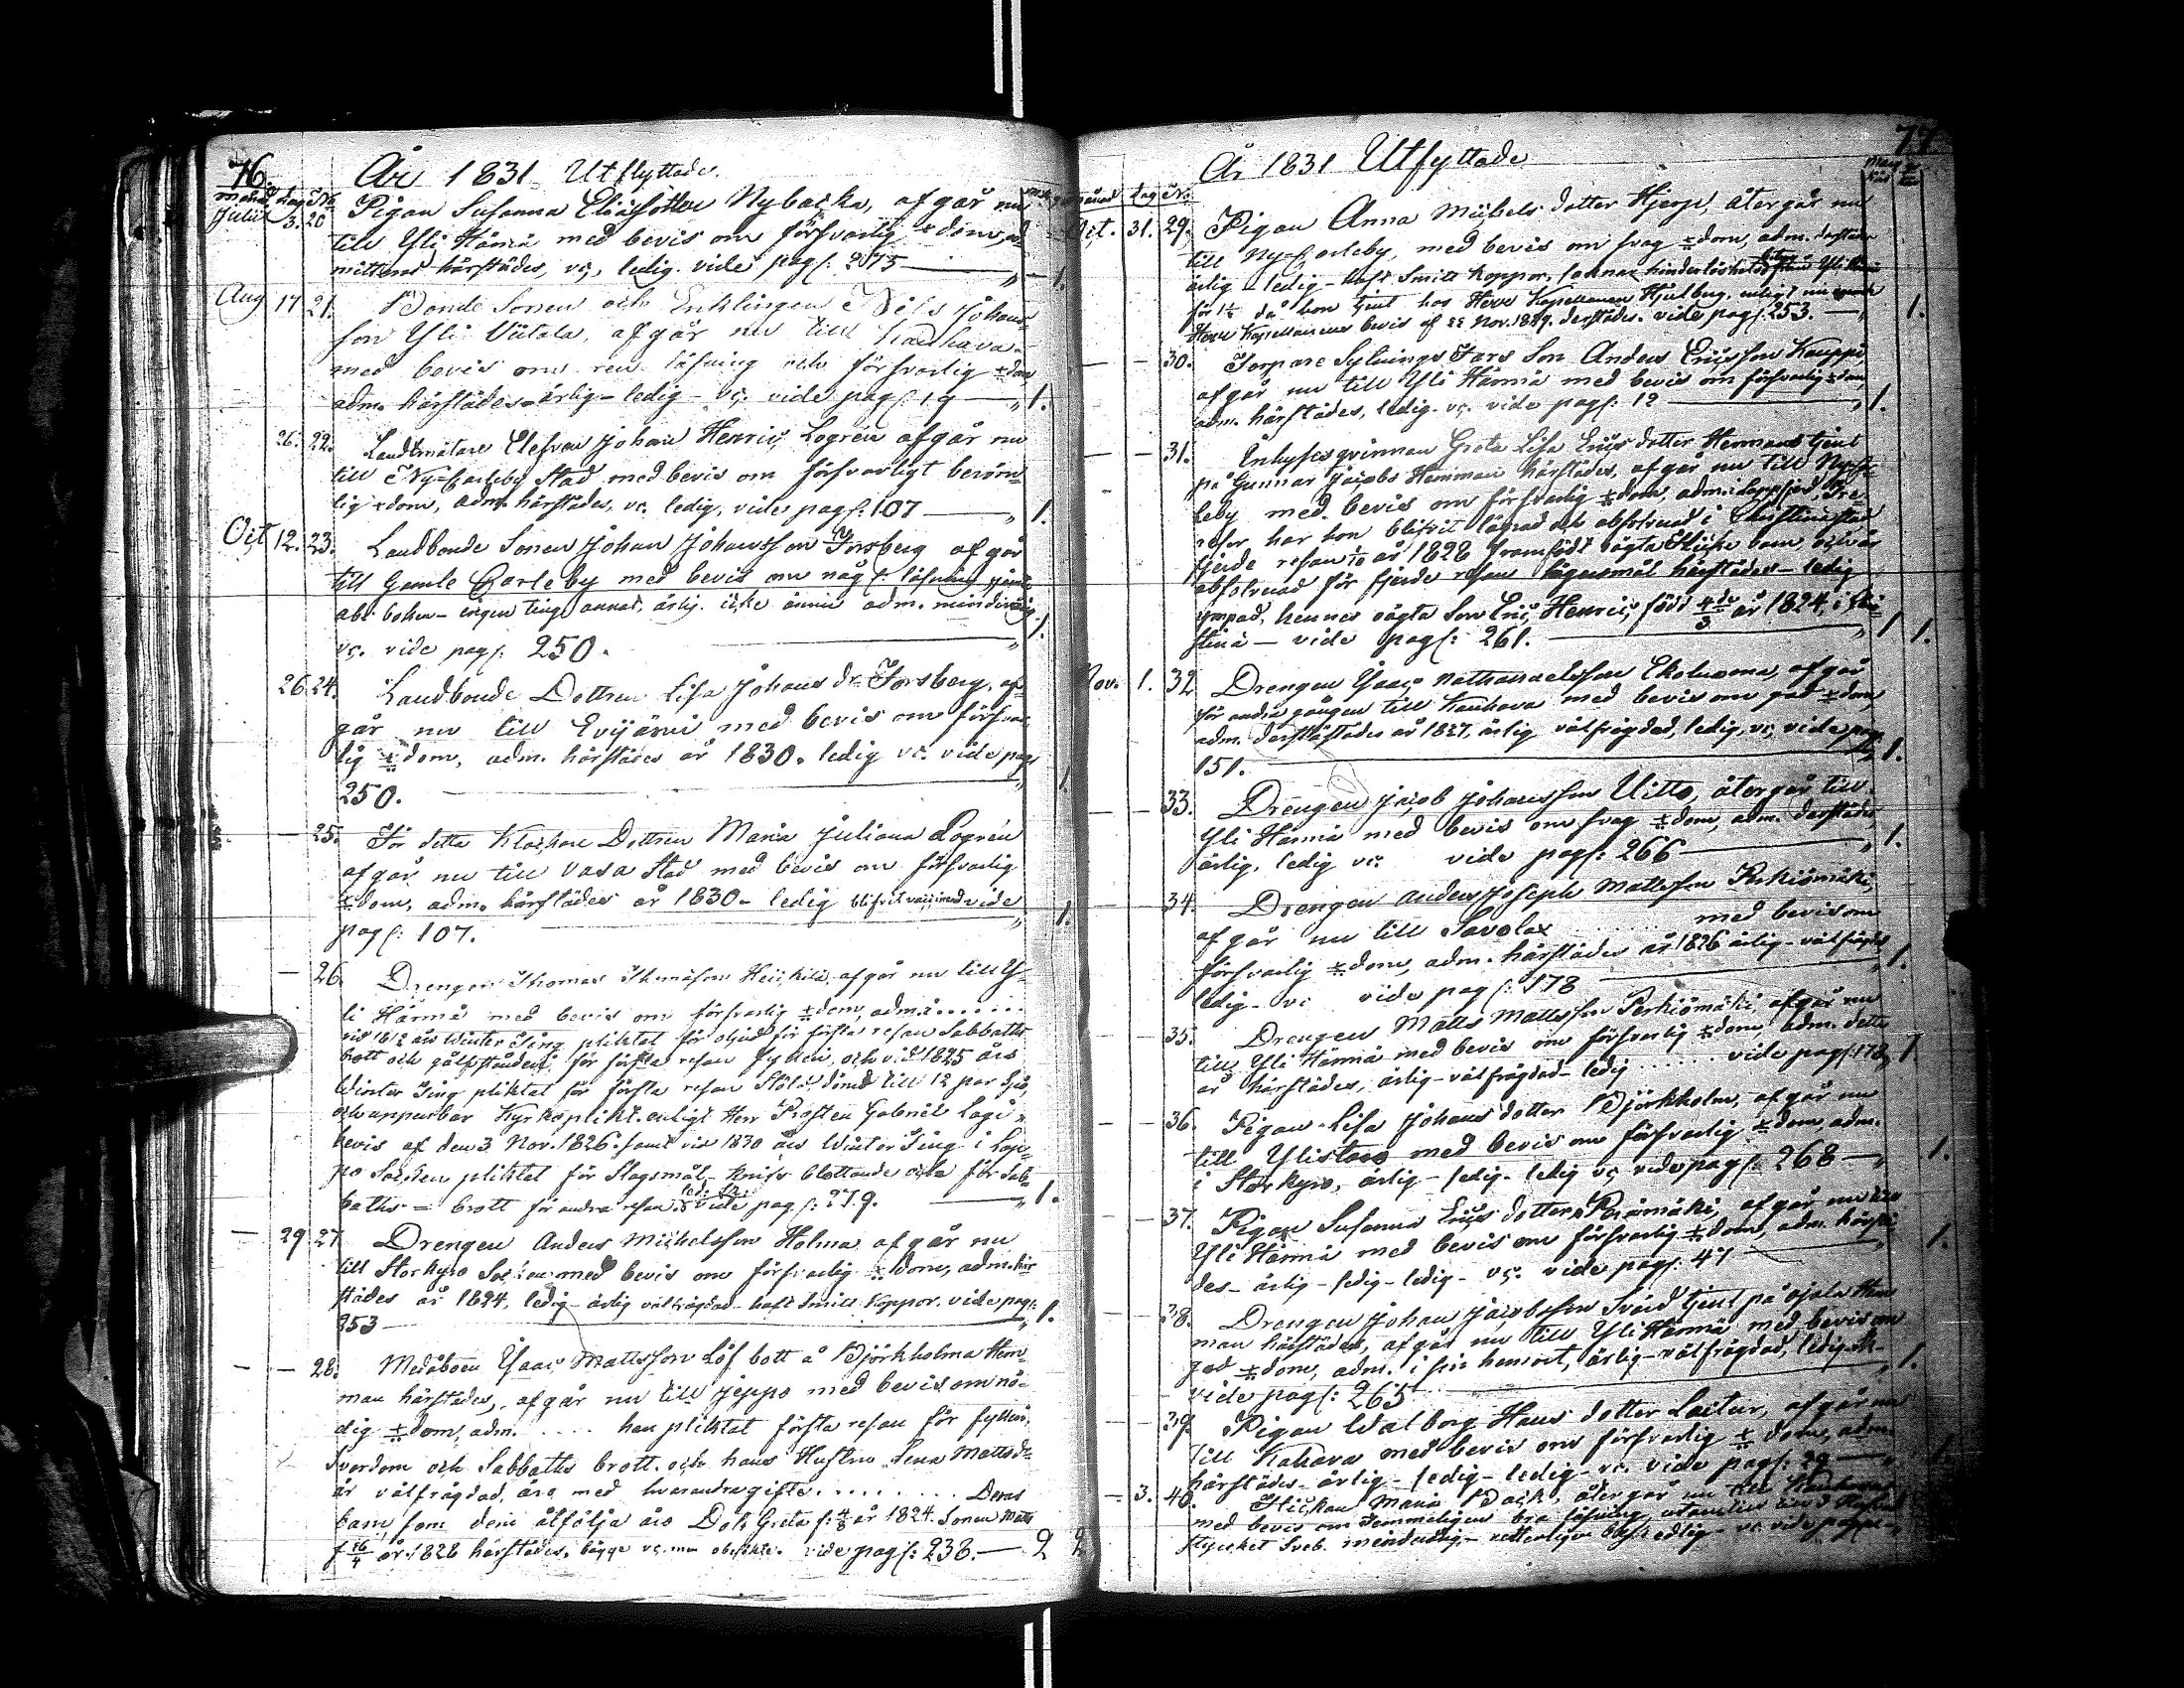 76.
År 1831 Utflyttade.
Månad Dag No
Julii 3. 20 Pigan Susanna Eliædotter Nybacka, afgår nu
till Yli Härmä med bevis om försvarlig xdom, ad-
mitterad härstädes, vc. ledig. vide pag: 2075 — " — 1.
Aug 17 21. Bonde Sonen och Enklingen Nils Johans-
son Yli Viitala, afgår nu till Kauhava
med bevis om ren läsning och försvarlig xdom
adm. härstädes - ärlig - ledig - vc. vide pag: 19 — " 1.
26. 22. Landtmätare Elefven Johan Henric Logren afgår nu
till Ny-Carleby Stad med bevis om försvarligt beröm-
lig xdom, adm. härstädes, vc. ledig, vide pag: 107 — " 1.
Oct 12. 23. Landbonde Sonen Johan Johansson Forsberg afgår
till Gamle Carleby med bevis om någ: läsning
abc boken - ingen ting annat, ärlig. icke ännu adm. minderårig
vc. vide pag: 250. — " 1.
26 24. Landbonde Dottren Lisa Johans dr Forsberg, af-
går nu till Evijärvi med bevis om försvar-
lig xdom, adm. härstädes år 1830. ledig vc. vide pag:
250. — " 1.
— 25. För detta Klockare Dottren Maria Juliana Logrén
afgår nu till Vasa Stad med bevis om försvarlig
xdom, adm. härstädes år 1830 - ledig blifvit vaccinerad vide
pag: 107. — " 1.
— 26. Drengen Thomas Thomasson Heickilä afgår nu till Y-
li Härmä med bevis om försvarlig xdom, adm. i ......
vid 1812 års Winter Ting pliktat för oljud för första resan Sabbaths
brott och för första resan fylleri, och vid 1825 års
Winter Ting pliktat för första resan Stöld, dömd till 12 par Spö,
och uppenbar Kyrkoplikt. enligt Herr Prosten Gabriel Lagi
bevis af den 3 Nov. 1826. samt vid 1830 års Winter Ting i Lap-
po Socken pliktat för Slagsmål, Knifs blottande och för Sab-
baths = brott för andra resan vide pag: 279. — " 1.
— 29 27. Drengen Anders Michelsson Holma afgår nu
till Storkyro Socken med bevis om försvarlig xdom, adm. här
städes år 1824. ledig - ärlig välfrägdad - haft Smitt Koppor. vide pag:
253 — " 1.
— — 28. Medåboen Isaac Mattsson Löf bott å Björkholma Hem-
man härstädes, afgår nu till Jeppo med bevis om nö-
dig xdom, adm. .... han pliktat första resan för fylleri,
Svordom och Sabbaths brott. och hans Hustru Lena Mattsdr
är välfrägdad, äro med hvarandra gifte. ........ Deras
barn, som dem åtfölja äro Dotr Greta f. 4/8 år 1824. Sonen Matts
f 26/4 år 1828 härstädes, bägge vc. vide pag: 238. — 2 2
77.
År 1831 Utflyttade
Månad Dag No
Oct. 31. 29. Pigan Anna Michels dotter Hjerpe, återgår nu
till Ny-Carleby, med bevis om svag xdom, adm. derstädes
ärlig - ledig - haft Smitt koppor, samt hinderlöshet
för 1½ då hon tjent hos Herr Kapellanen Hjulberg, enligt
Herr Kapellanens bevis af 22 Nov. 1829. derstädes. vide pag: 253. — " 1.
— — 30. Torpare Sytnings Fars Son Anders Ericsson Kauppi
afgår nu till Yli Härmä med bevis om försvarlig xdom,
adm. härstädes, ledig. vc. vide pag: 12 — " 1.
— — 31. Inhyses qvinnan Greta Lisa Erics dotter Hermans tjent
på Gunnar Jacobs Hemman härstädes, afgår nu till Ny Car-
leby med bevis om försvarlig xdom, adm. i Lappfjerd, Tre
resor har hon blifvit lägrad och absolverad i Christinestad
fjerde resan 1/10 år 1828 framfödt oägta Flicke barn, och är
absolverad för fjerde resans lägersmål härstädes - ledig
ympad, hennes oägta Son Eric Henric, född 4de/3 år 1824, i Chri-
stina — vide pag: 261. — " 1 1.
Nov. 1. 32 Drengen Isaac Nathanaelsson Ekoluoma, afgår
för andra gången till Kauhava med bevis om god xdom,
adm. derstädes år 1827, ärlig välfrägdad, ledig, vc, vide pag.
151. — " 1.
— — 33. Drengen Jacob Johansson Uitto, återgår till
Yli Härmä med bevis om svag xdom, adm. derstädes,
ärlig, ledig vc. vide pag: 266 — " 1.
— — 34. Drengen Anders Joseph Mattsson Perkiömäki,
afgår nu till Savolax ...... med bevis om
försvarlig xdom, adm. härstädes år 1826 ärlig - välfrägdad
ledig - vc vide pag: 178 — " 1.
— — 35. Drengen Matts Mattsson Perkiömäki, afgår nu
till Yli Härmä med bevis om försvarlig xdom, adm. detta
år härstädes, ärlig - välfrägdad - ledig .... vide pag: 178, 1
— — 36. Pigan Lisa Johans dotter Björkholm, afgår nu
till Ylistaro med bevis om försvarlig xdom, adm.
i Storkyro, ärlig - ledig. ledig vc vide pag: 268 — " 1.
— — 37. Pigan Susanna Erics dotter, afgår nu till
Yli Härmä med bevis om försvarlig xdom, adm. härstä
des - ärlig - ledig - ledig - vc. vide pag: 47 — " 1.
— — 38. Drengen Johan Jacobsson Svärd tjent på Ojala Hem
man härstädes, afgår nu till Yli Härmä med bevis om
god xdom, adm. i sin hemort, ärlig - välfrägdad, ledig.
vide pag: 265 — " 1.
— — 39. Pigan Walborg Hans dotter Laitur, afgår nu
till Kahava med bevis om försvarlig xdom, adm.
härstädes - ärlig - ledig - ledig - vc. vide pag: 29 — " 1.
— 3. 40. Flickan Maria Back, återgår nu till Kauhava
med bevis om temmeligen bra läsning, utantill
stycket Sveb. minderårig - vc. vide